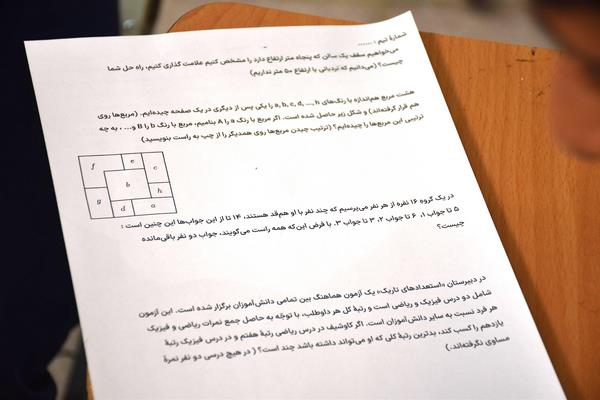 شمارهٔ تیم : ......
می‌خواهیم سقف یک سالن که پنجاه متر ارتفاع دارد را مشخص کنیم علامت گذاری کنیم، راه حل شما
چیست؟ (می‌دانیم که نردبانی با ارتفاع ۵۰ متر نداریم)
هشت مربع هم‌اندازه با رنگ‌های a, b, c, d, ..., h را یکی پس از دیگری در یک صفحه چیده‌ایم. (مربع‌ها روی
هم قرار گرفته‌اند) و شکل زیر حاصل شده است. اگر مربع با رنگ a را A بنامیم، مربع با رنگ b را B و... ، به چه
ترتیبی این مربع‌ها را چیده‌ایم؟ (ترتیب چیدن مربع‌ها روی همدیگر را از چپ به راست بنویسید)
f e c
b
g h
d a
در یک گروه ۱۶ نفره از هر نفر می‌پرسیم که چند نفر با او هم‌قد هستند، ۱۴ تا از این جواب‌ها این چنین است :
۵ تا جواب ۱، ۶ تا جواب ۲، ۳ تا جواب ۳. با فرض این‌که همه راست می‌گویند، جواب دو نفر باقی‌مانده
چیست؟
در دبیرستان «استعدادهای تاریک» یک آزمون هماهنگ بین تمامی دانش‌آموزان برگزار شده است. این آزمون
شامل دو درس فیزیک و ریاضی است و رتبهٔ کل هر داوطلب، با توجّه به حاصل جمع نمرات ریاضی و فیزیک
هر فرد نسبت به سایر دانش‌آموزان است. اگر کاوشیف در درس ریاضی رتبهٔ هفتم و در درس فیزیک رتبهٔ
یازدهم را کسب کند، بدترین رتبهٔ کلی که او می‌تواند داشته باشد چند است؟ ( در هیچ درسی دو نفر نمرهٔ
مساوی نگرفته‌اند.)